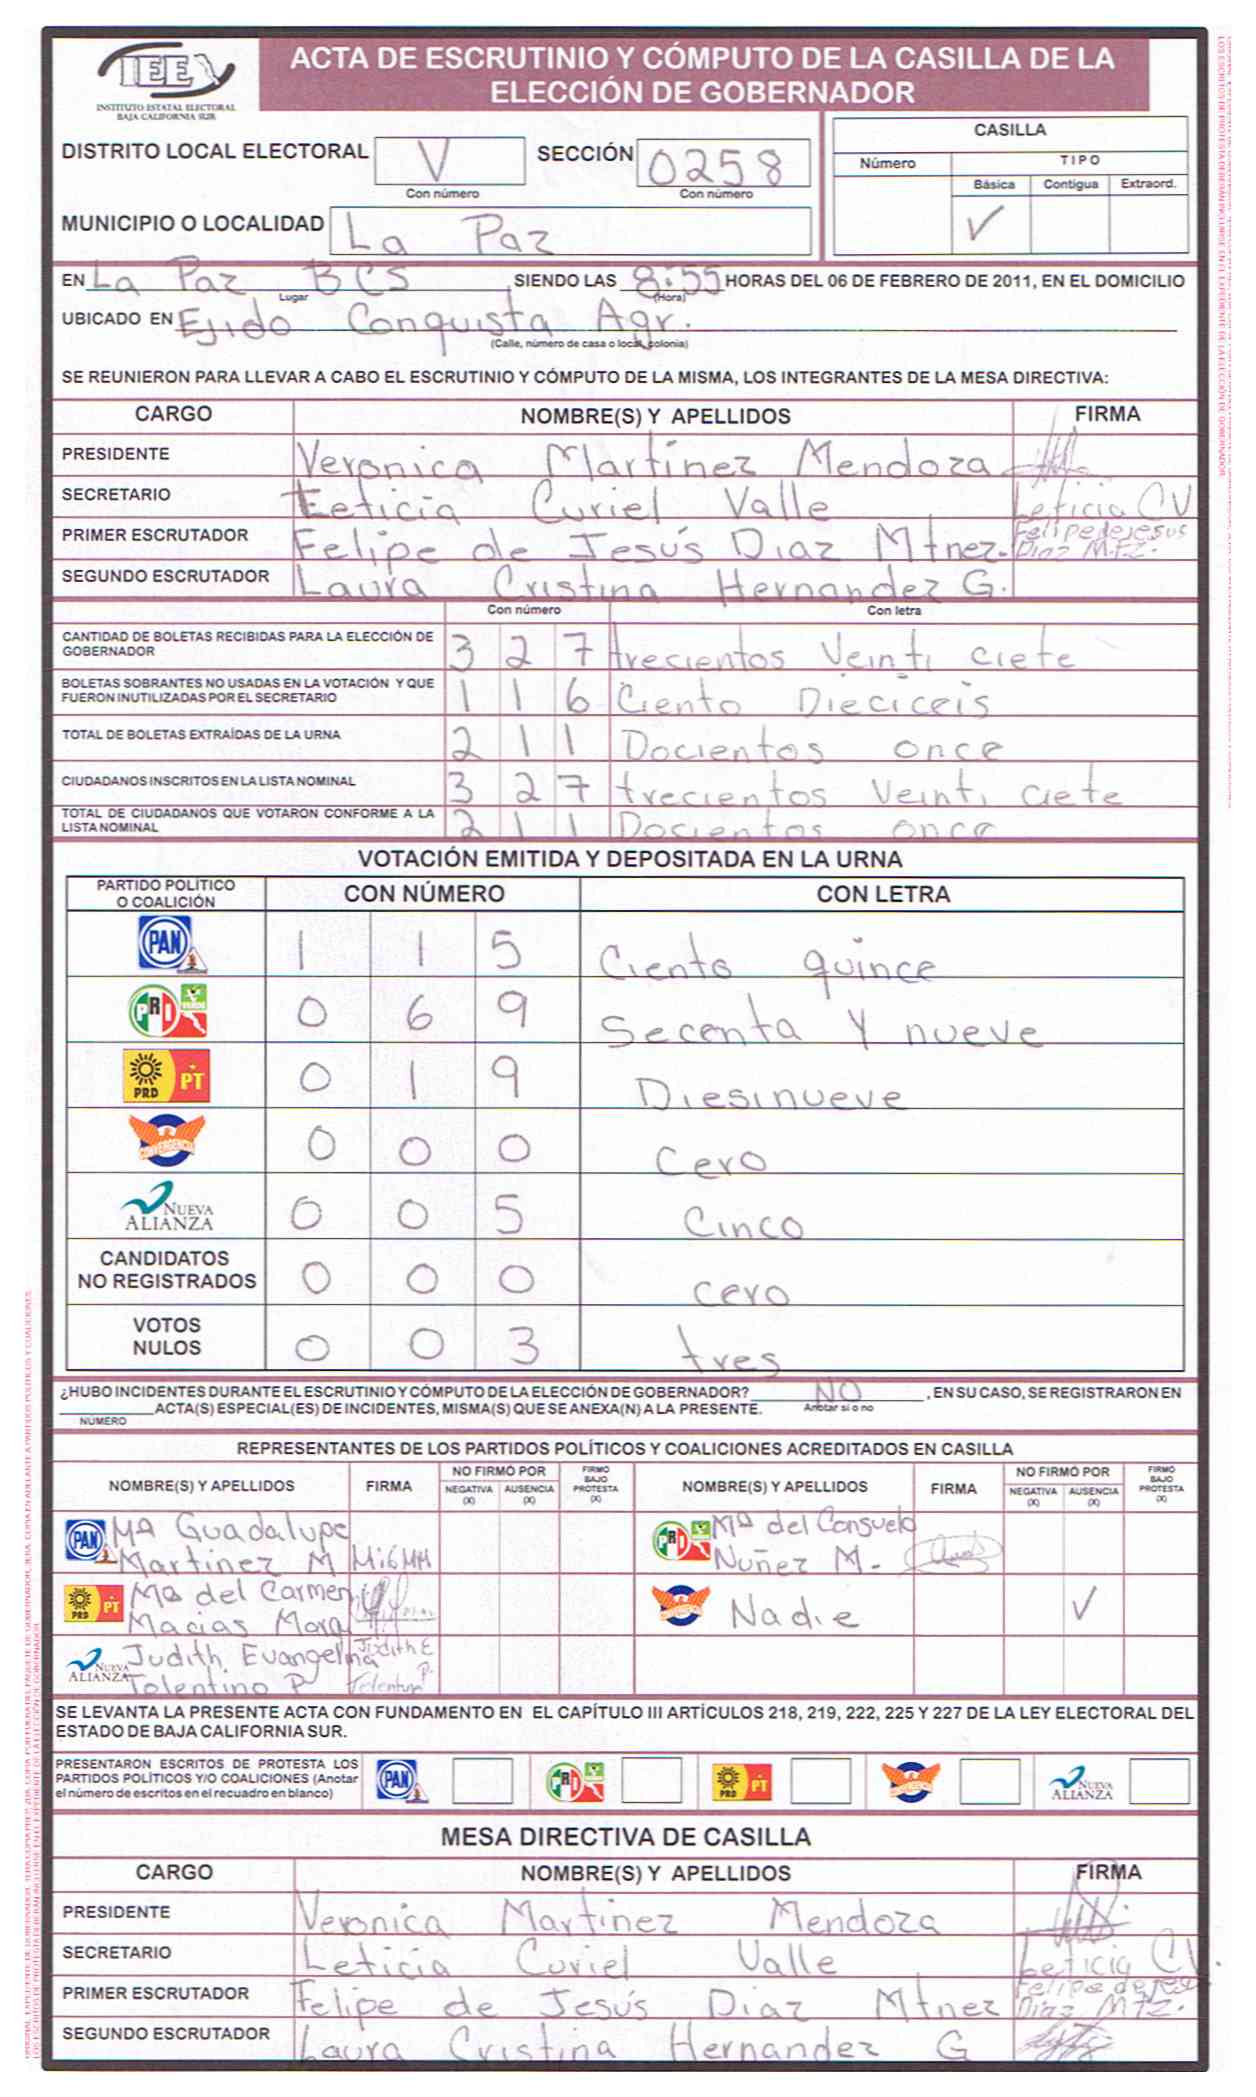 IEE
INSTITUTO ESTATAL ELECTORAL
BAJA CALIFORNIA SUR
ACTA DE ESCRUTINIO Y CÓMPUTO DE LA CASILLA DE LA
ELECCIÓN DE GOBERNADOR
DISTRITO LOCAL ELECTORAL V SECCIÓN 0258
Con número Con número
CASILLA
Número TIPO
Básica Contigua Extraord.
✓
MUNICIPIO O LOCALIDAD La Paz
EN La Paz BCS SIENDO LAS 8:55 HORAS DEL 06 DE FEBRERO DE 2011, EN EL DOMICILIO
Lugar (Hora)
UBICADO EN Ejido Conquista Agr.
(Calle, número de casa o local, colonia)
SE REUNIERON PARA LLEVAR A CABO EL ESCRUTINIO Y CÓMPUTO DE LA MISMA, LOS INTEGRANTES DE LA MESA DIRECTIVA:
CARGO NOMBRE(S) Y APELLIDOS FIRMA
PRESIDENTE Veronica Martínez Mendoza
SECRETARIO Leticia Curiel Valle Leticia CV
PRIMER ESCRUTADOR Felipe de Jesús Diaz Mtnez. Felipe de jesus Diaz MTZ.
SEGUNDO ESCRUTADOR Laura Cristina Hernandez G.
Con número Con letra
CANTIDAD DE BOLETAS RECIBIDAS PARA LA ELECCIÓN DE
GOBERNADOR 3 2 7 trecientos Veinti ciete
BOLETAS SOBRANTES NO USADAS EN LA VOTACIÓN Y QUE
FUERON INUTILIZADAS POR EL SECRETARIO 1 1 6 Ciento Dieciceis
TOTAL DE BOLETAS EXTRAÍDAS DE LA URNA 2 1 1 Docientos once
CIUDADANOS INSCRITOS EN LA LISTA NOMINAL 3 2 7 trecientos Veinti ciete
TOTAL DE CIUDADANOS QUE VOTARON CONFORME A LA
LISTA NOMINAL 2 1 1 Docientos once
VOTACIÓN EMITIDA Y DEPOSITADA EN LA URNA
PARTIDO POLÍTICO
O COALICIÓN CON NÚMERO CON LETRA
PAN 1 1 5 Ciento quince
PRI VERDE 0 6 9 Secenta y nueve
PRD PT 0 1 9 Diesinueve
CONVERGENCIA 0 0 0 Cero
NUEVA ALIANZA 0 0 5 Cinco
CANDIDATOS
NO REGISTRADOS 0 0 0 cero
VOTOS
NULOS 0 0 3 tres
¿HUBO INCIDENTES DURANTE EL ESCRUTINIO Y CÓMPUTO DE LA ELECCIÓN DE GOBERNADOR? NO , EN SU CASO, SE REGISTRARON EN
Anotar si o no
ACTA(S) ESPECIAL(ES) DE INCIDENTES, MISMA(S) QUE SE ANEXA(N) A LA PRESENTE.
NÚMERO
REPRESENTANTES DE LOS PARTIDOS POLÍTICOS Y COALICIONES ACREDITADOS EN CASILLA
NOMBRE(S) Y APELLIDOS FIRMA NO FIRMÓ POR NEGATIVA (X) AUSENCIA (X) FIRMO BAJO PROTESTA (X) NOMBRE(S) Y APELLIDOS FIRMA NO FIRMÓ POR NEGATIVA (X) AUSENCIA (X) FIRMO BAJO PROTESTA (X)
PAN Mª Guadalupe PRI Mª del Consuelo
Martinez M Nuñez M.
PRD PT Ma del Carmen CONVERGENCIA Nadie ✓
Macias Mora
NUEVA ALIANZA Judith Evangelina Judith E
Tolentino P
SE LEVANTA LA PRESENTE ACTA CON FUNDAMENTO EN EL CAPÍTULO III ARTÍCULOS 218, 219, 222, 225 Y 227 DE LA LEY ELECTORAL DEL
ESTADO DE BAJA CALIFORNIA SUR.
PRESENTARON ESCRITOS DE PROTESTA LOS
PARTIDOS POLÍTICOS Y/O COALICIONES (Anotar
el número de escritos en el recuadro en blanco)
PAN PRI PRD PT CONVERGENCIA NUEVA ALIANZA
MESA DIRECTIVA DE CASILLA
CARGO NOMBRE(S) Y APELLIDOS FIRMA
PRESIDENTE Veronica Martinez Mendoza
SECRETARIO Leticia Curiel Valle Leticia CV.
PRIMER ESCRUTADOR Felipe de Jesús Diaz Mtnez Felipe de jesus Diaz MTZ.
SEGUNDO ESCRUTADOR Laura Cristina Hernandez G